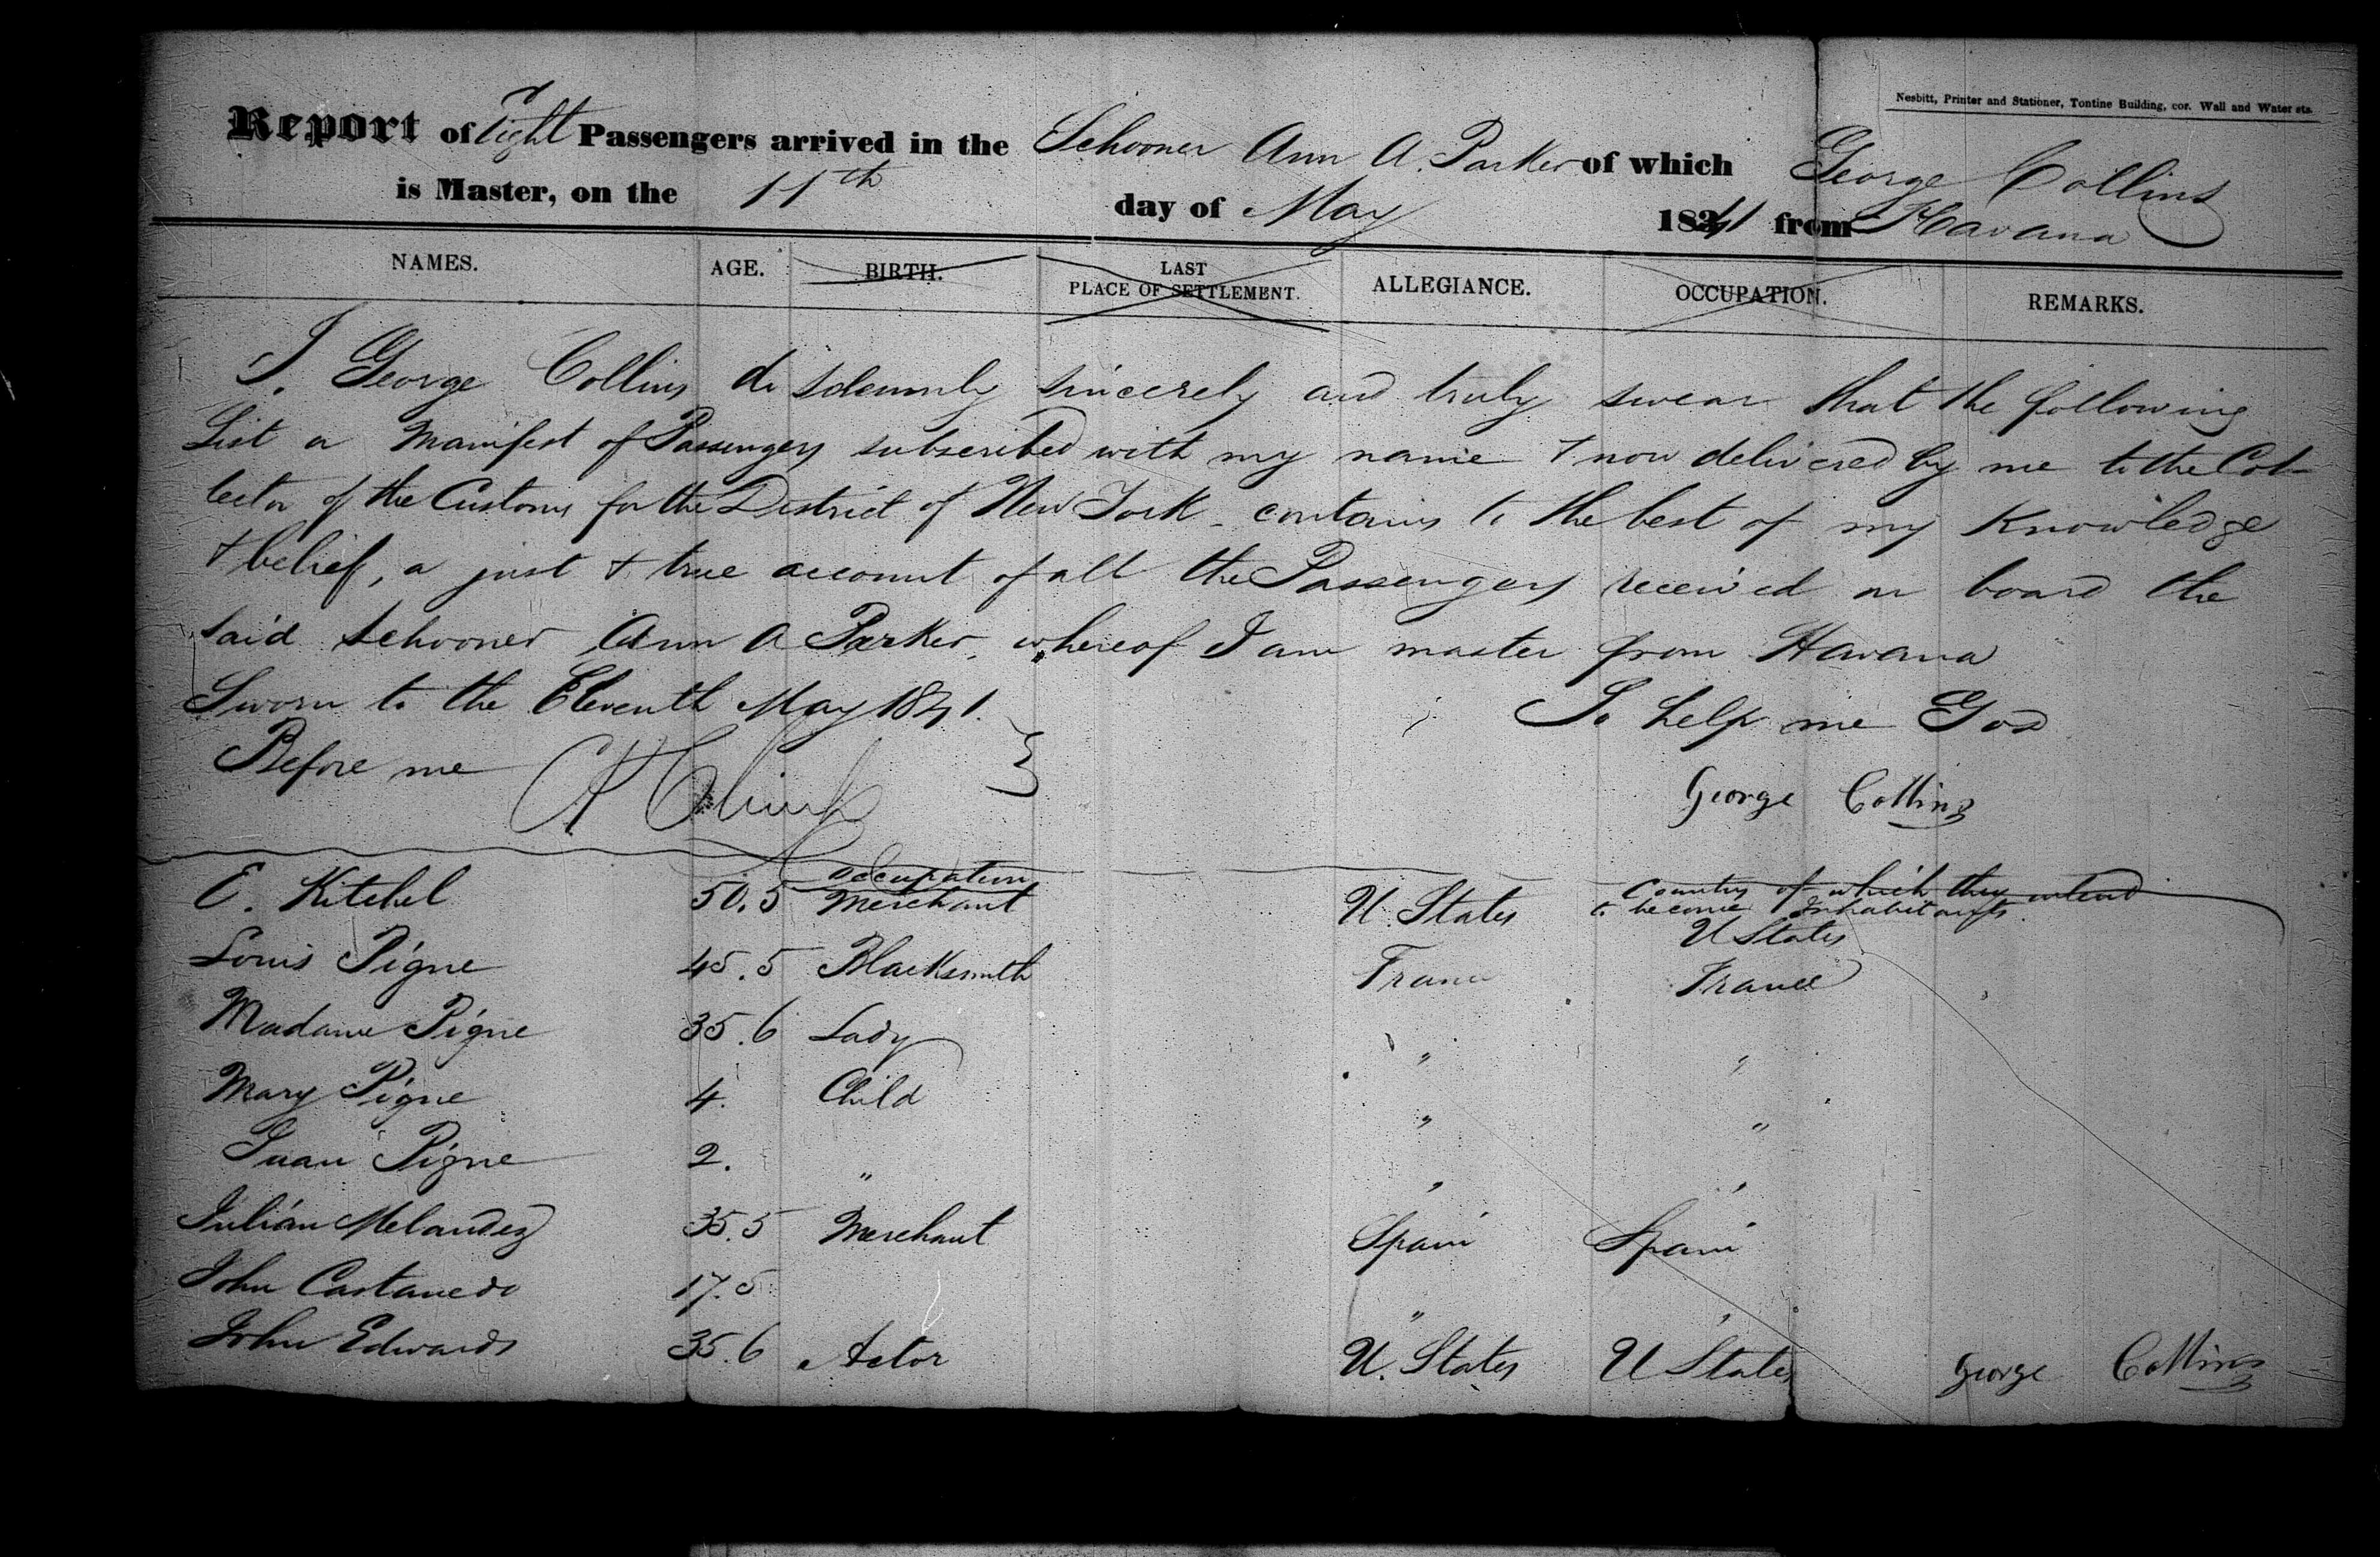 Nesbitt, Printer and Stationer, Tontine Building, cor. Wall and Water sts.
Report of Eight Passengers arrived in the Schooner Ann A. Parker of which George Collins
is Master, on the 11th day of May 1841 from Havana
NAMES. AGE. BIRTH. LAST PLACE OF SETTLEMENT. ALLEGIANCE. OCCUPATION. REMARKS.
I. George Collins do solemnly sincerely and truly swear that the following
List or Manifest of Passengers subscribed with my name & now delivered by me to the Col-
lector of the Customs for the District of New York - contains to the best of my Knowledge
& belief, a just & true account of all the Passengers received on board the
said schooner Ann A Parker, whereof I am master from Havana
Sworn to the Eleventh May 1841. So help me God
Before me
George Collins
Occupation Country of which they intend
to become Inhabitants.
E. Kitchel 50.5 Merchant U. States U States
Louis Pigne 45.5 Blacksmith France France
Madame Pigne 35.6 Lady " "
Mary Pigne 4. Child " "
Juan Pigne 2. " " "
Julián Melandez 35.5 Merchant Spain Spain
John Castanedo 17.5 " "
John Edwards 35.6 Actor U. States U States George Collins